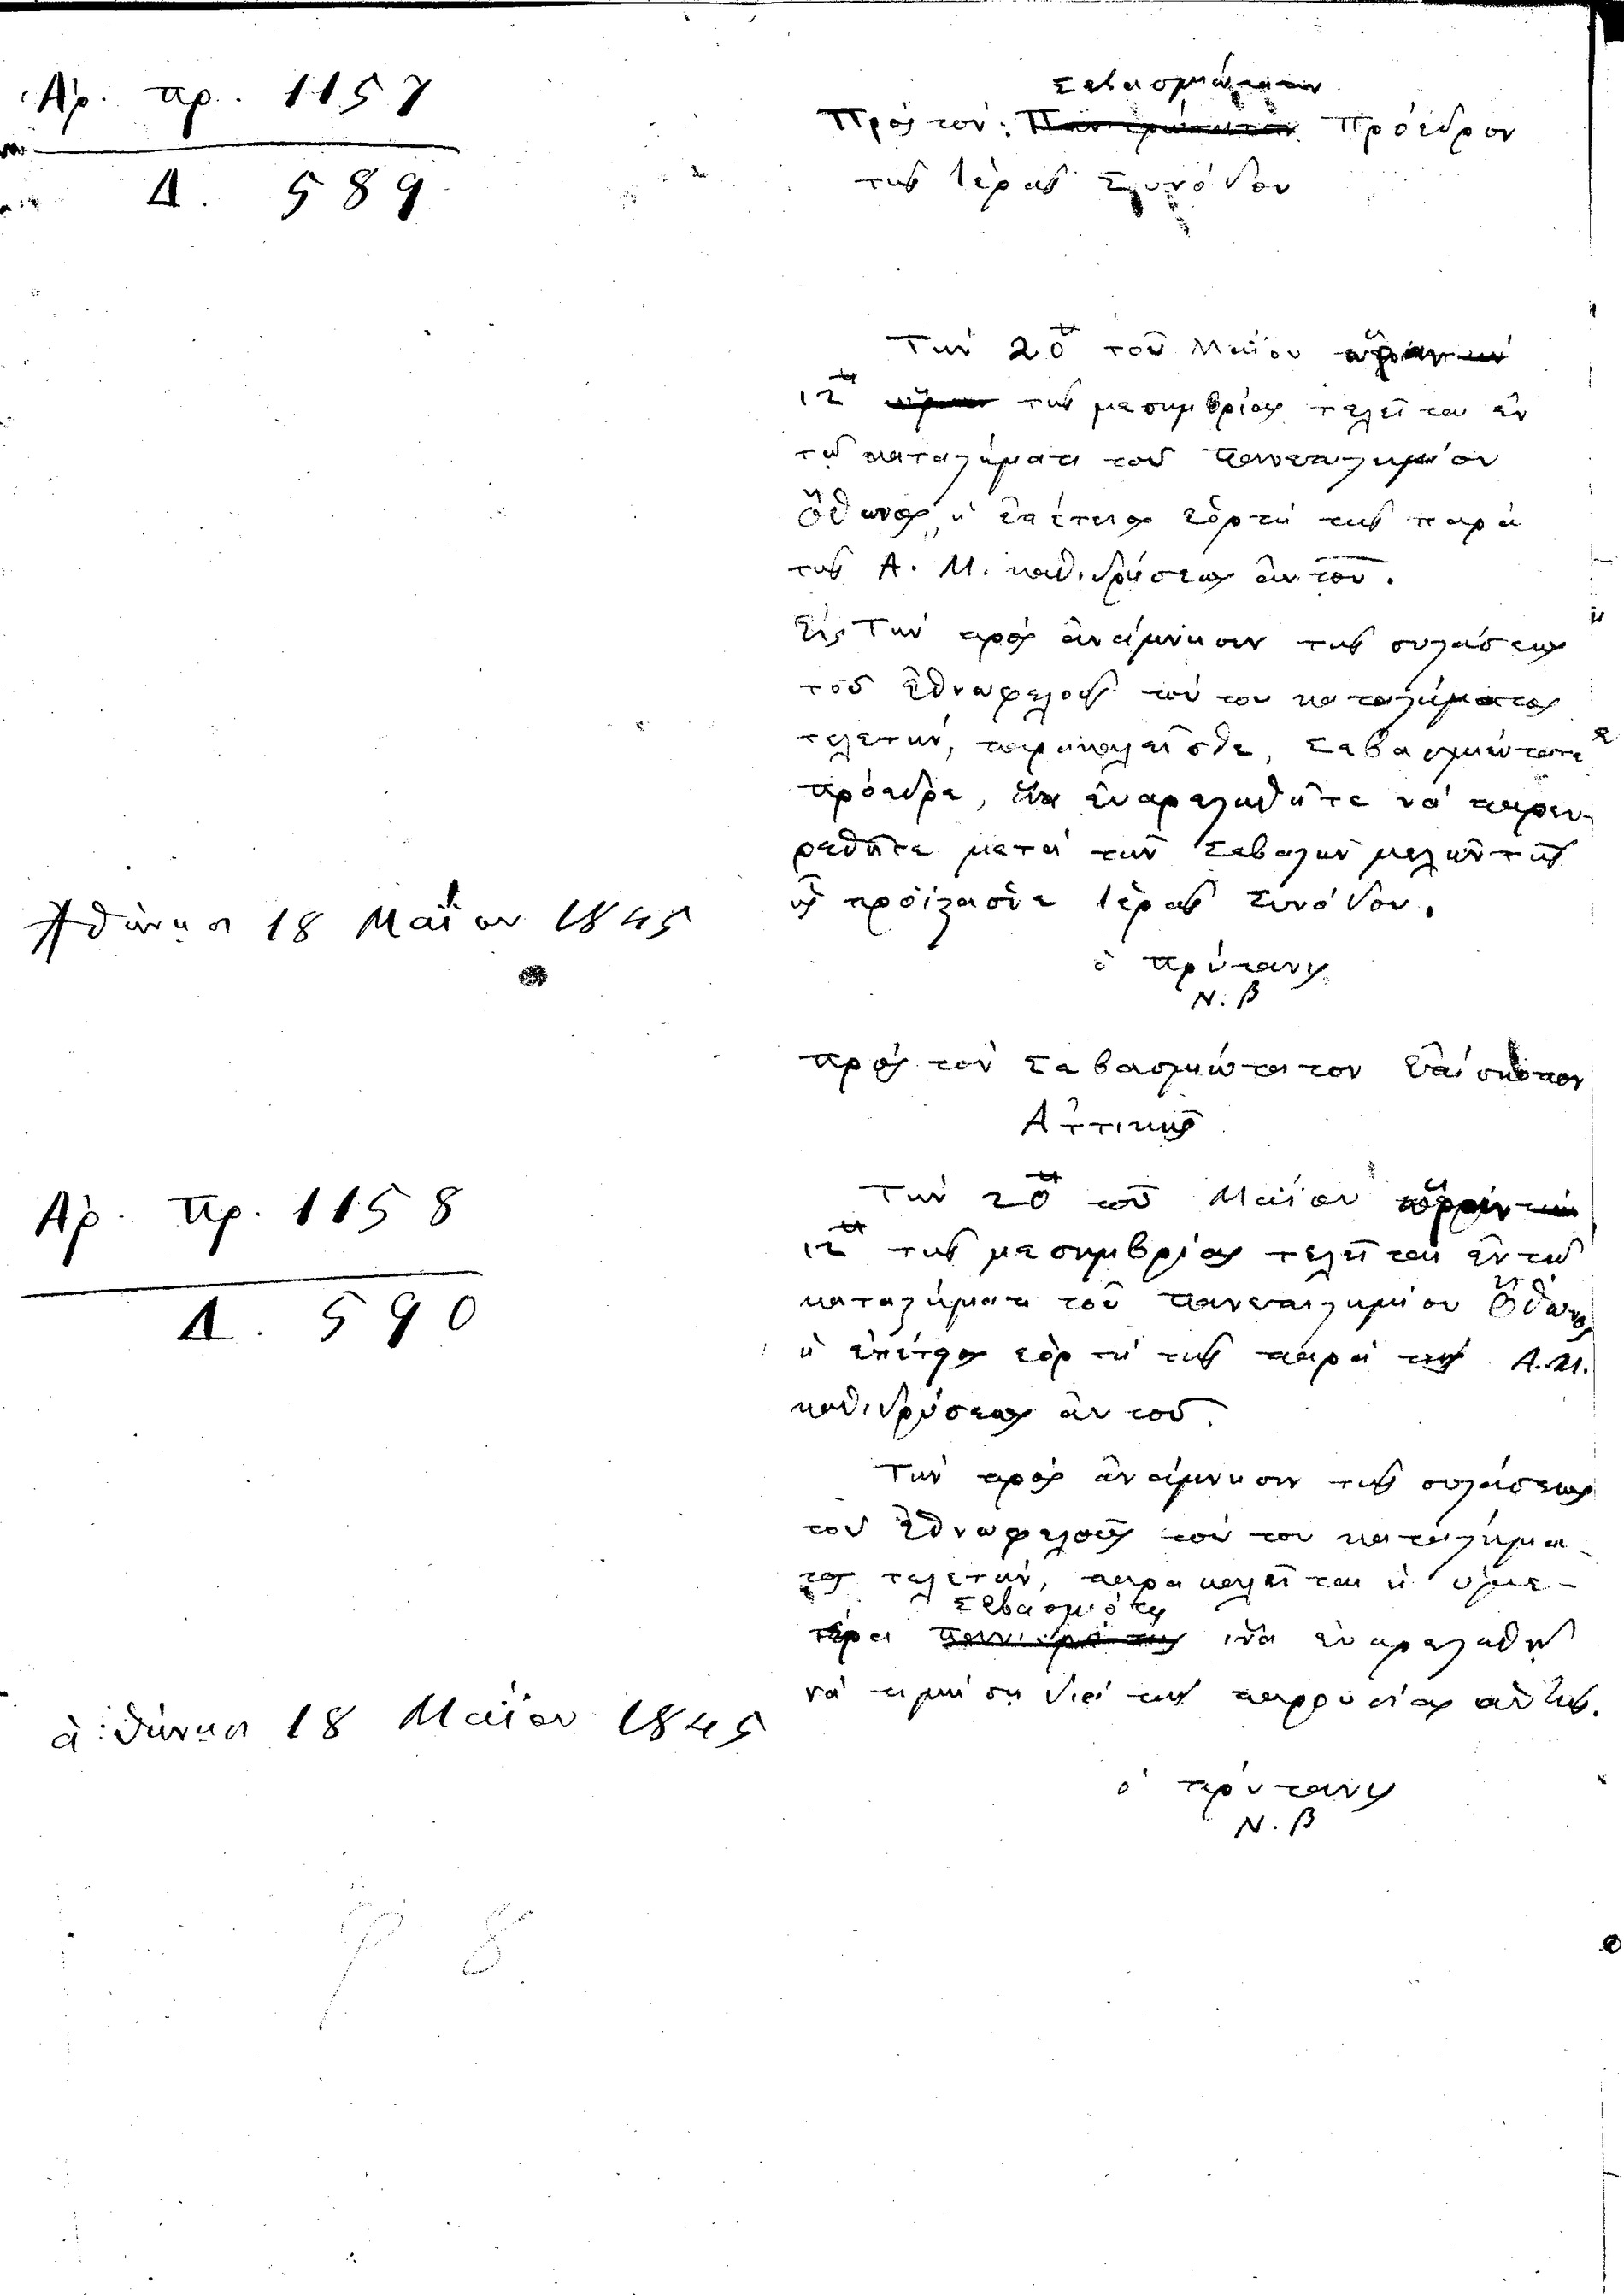 Ἀρ. πρ. 1157
Δ. 589
Σεβασμιώτατον
Πρὸς τὸν Πανιερώτατον Πρόεδρον
τῆς Ἱερᾶς Συνόδου
Τὴν 20ὴν τοῦ Μαΐου ὥραν τὴν
12ην ὥραν τῆς μεσημβρίας τελεῖται ἐν
τῷ καταστήματι τοῦ Πανεπιστημίου
Ὄθωνος ἡ ἐπέτειος ἑορτὴ τῆς παρὰ
τῆς Α. Μ. καθιδρύσεως αὐτοῦ.
Εἰς Τὴν πρὸς ἀνάμνησιν τῆς συστάσεως
τοῦ ἐθνωφελοῦς τούτου καταστήματος
τελετὴν, παρακαλεῖσθε, Σεβασμιώτατε
πρόεδρε, ἵνα εὐαρεστηθῆτε νὰ παρευ-
ρεθῆτε μετὰ τῶν Σεβαστῶν μελῶν τῆς
ἧς προΐστασθε Ἱερᾶς Συνόδου.
Ἀθήνησι 18 Μαΐου 1845
ὁ πρύτανις
Ν. Β
πρὸς τὸν Σεβασμιώτατον Ἐπίσκοπον
Ἀττικῆς
Ἀρ. Πρ. 1158
Δ. 590
Τὴν 20ὴν τοῦ Μαΐου ὥραν τὴν
12ην τῆς μεσημβρίας τελεῖται ἐν τῷ
καταστήματι τοῦ Πανεπιστημίου Ὄθωνος
ἡ ἐπέτειος ἑορτὴ τῆς παρὰ τῆς Α. Μ.
καθιδρύσεως αὐτοῦ.
Τὴν πρὸς ἀνάμνησιν τῆς συστάσεως
τοῦ ἐθνωφελοῦς τούτου καταστήμα-
τος τελετὴν, παρακαλεῖται ἡ ὑμε-
Σεβασμιότης
τέρα πανιερότης ἵνα εὐαρεστηθῇ
νὰ τιμήσῃ διὰ τῆς παρουσίας αὐτῆς.
ἀθήνησι 18 Μαΐου 1845
ὁ πρύτανις
Ν. Β